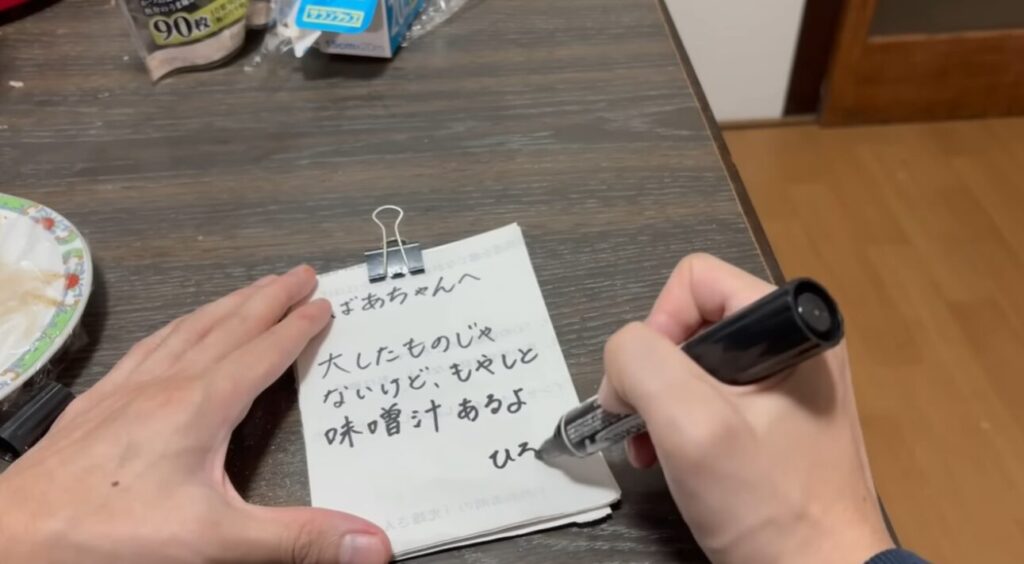 90枚
サランラップ
ばあちゃんへ
大したものじゃ
ないけど、もやしと
味噌汁あるよ
ひろ